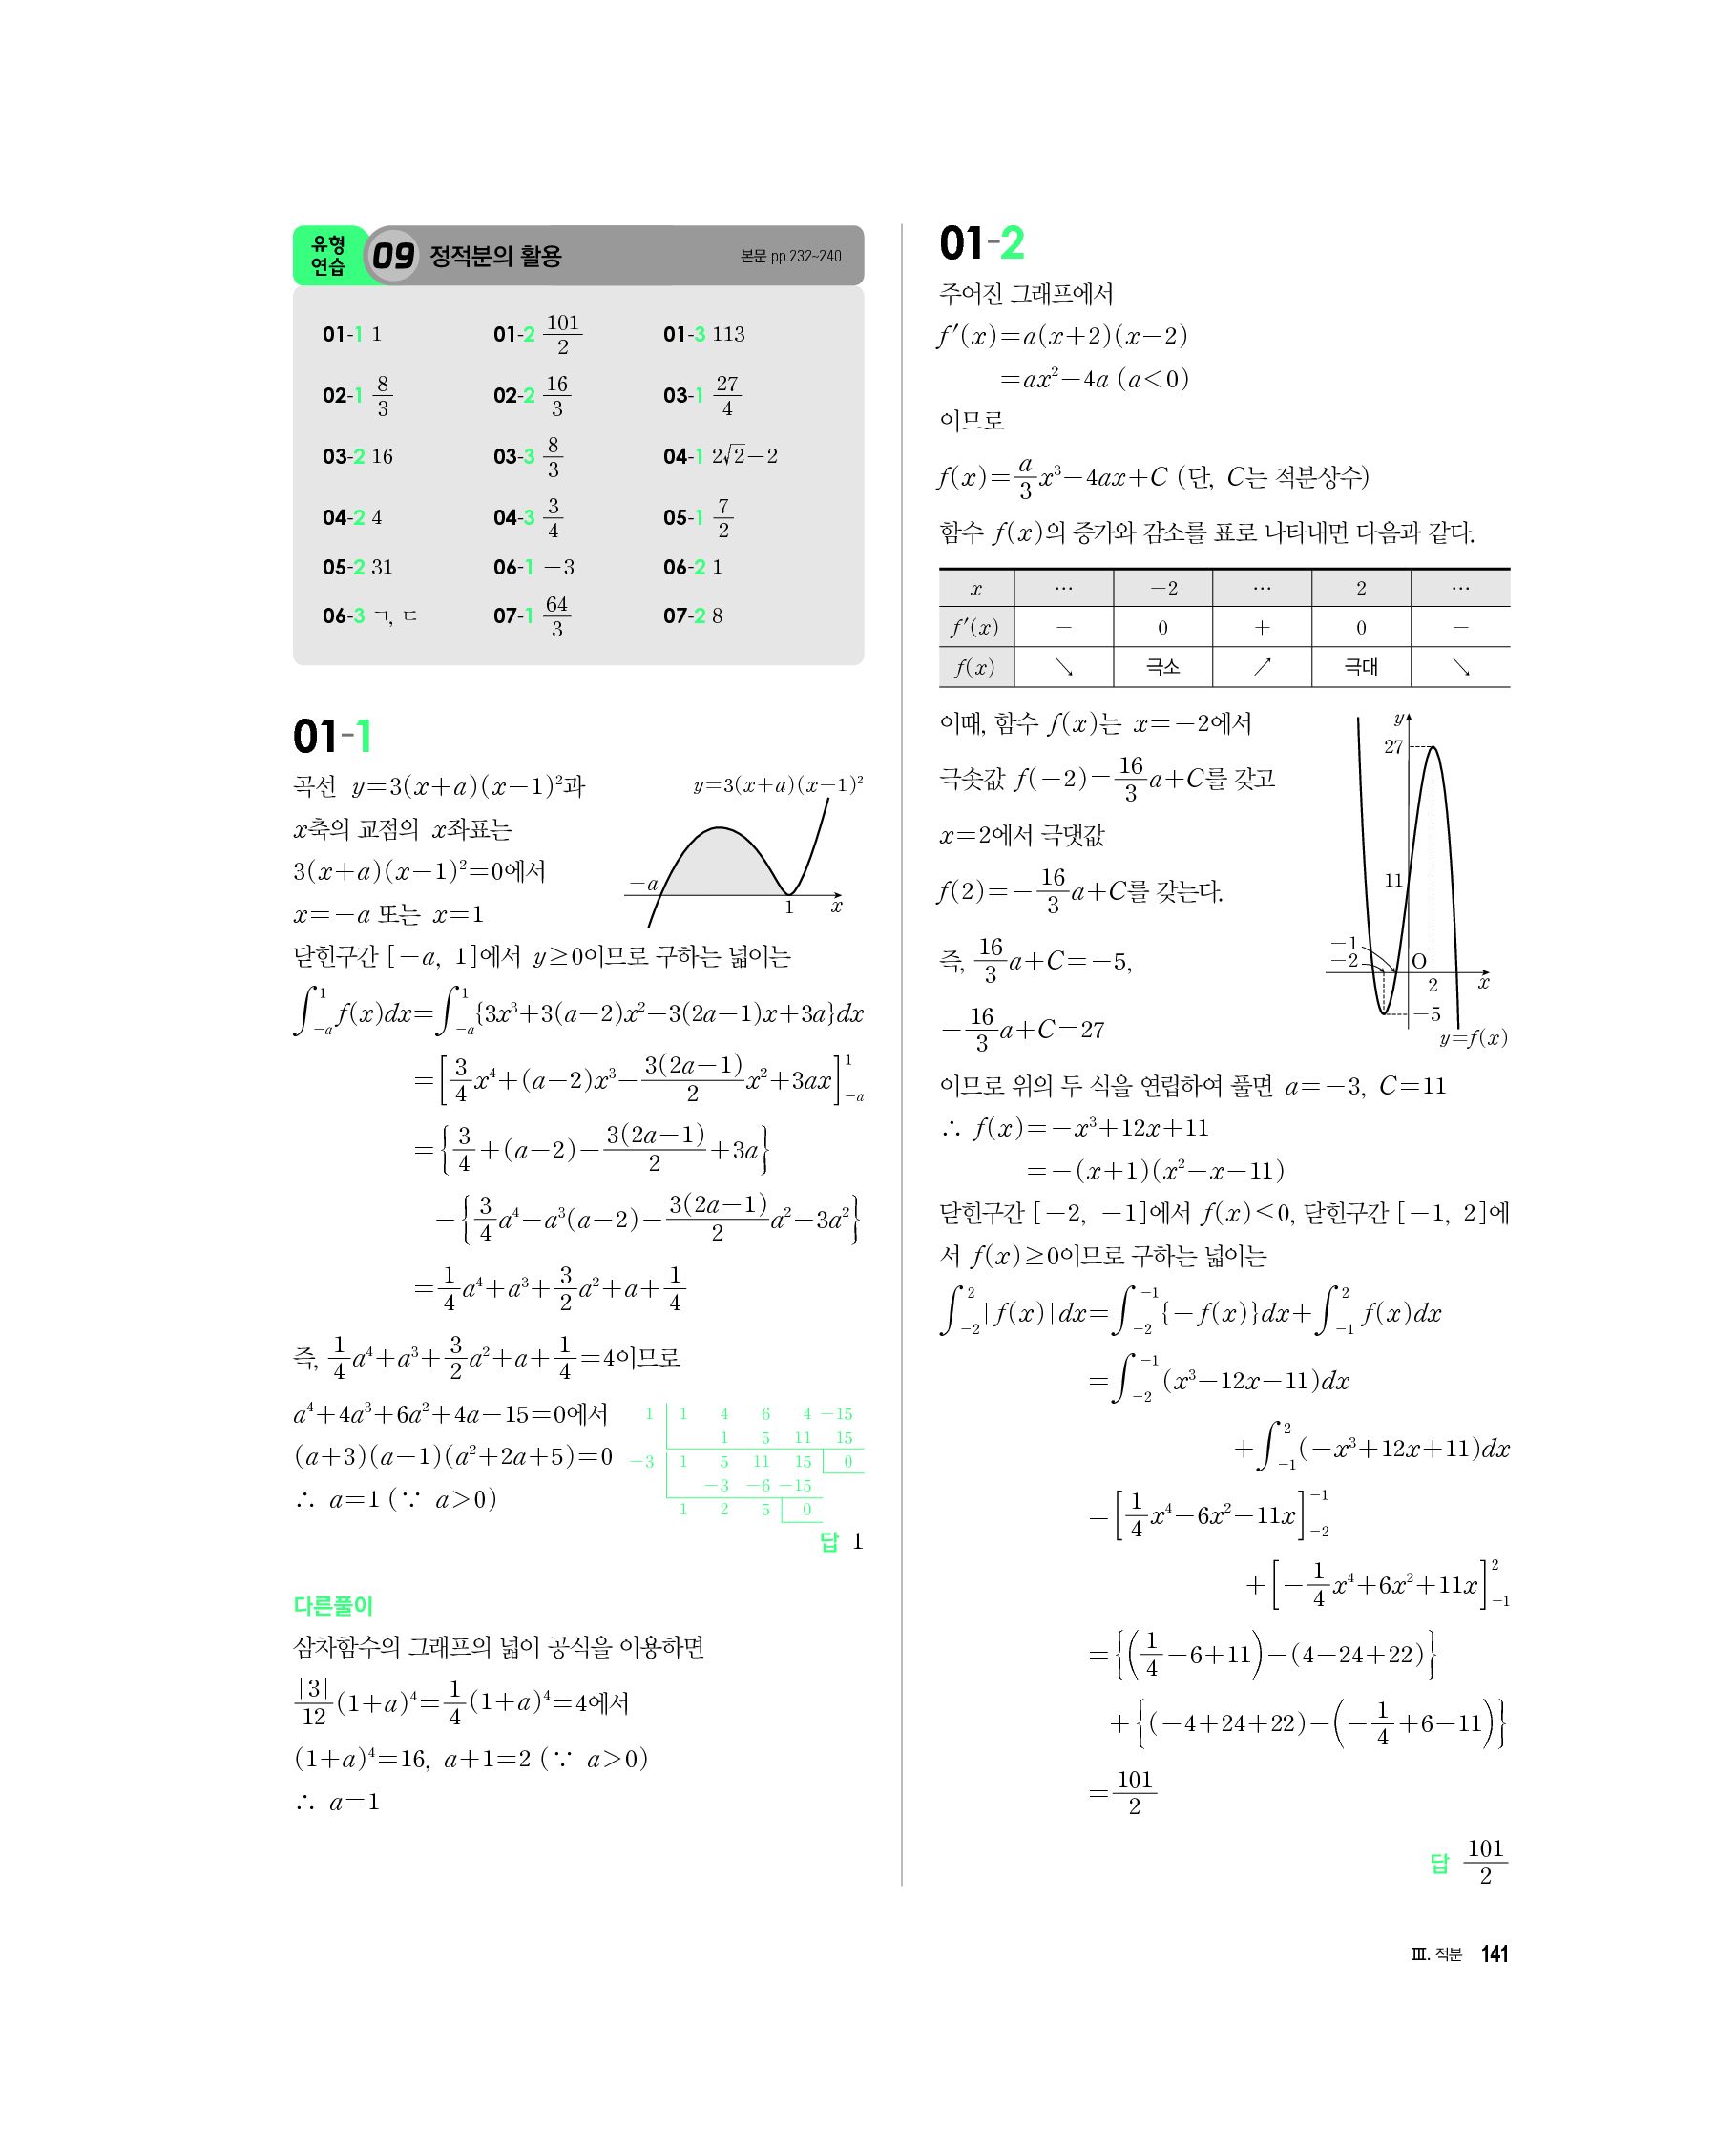 유형
연습 09 정적분의 활용 본문 pp.232~240
01-1 1 01-2 101/2 01-3 113
02-1 8/3 02-2 16/3 03-1 27/4
03-2 16 03-3 8/3 04-1 2√2−2
04-2 4 04-3 3/4 05-1 7/2
05-2 31 06-1 −3 06-2 1
06-3 ㄱ, ㄷ 07-1 64/3 07-2 8
01-1
곡선 y=3(x+a)(x−1)²과
x축의 교점의 x좌표는
3(x+a)(x−1)²=0에서
x=−a 또는 x=1
y=3(x+a)(x−1)²
−a 1 x
닫힌구간 [−a, 1]에서 y≥0이므로 구하는 넓이는
∫_{−a}^{1} f(x)dx=∫_{−a}^{1} {3x³+3(a−2)x²−3(2a−1)x+3a}dx
=[3/4 x⁴+(a−2)x³−3(2a−1)/2 x²+3ax]_{−a}^{1}
={3/4+(a−2)−3(2a−1)/2+3a}
−{3/4 a⁴−a³(a−2)−3(2a−1)/2 a²−3a²}
=1/4 a⁴+a³+3/2 a²+a+1/4
즉, 1/4 a⁴+a³+3/2 a²+a+1/4=4이므로
a⁴+4a³+6a²+4a−15=0에서
(a+3)(a−1)(a²+2a+5)=0
∴ a=1 (∵ a>0)
1 1 4 6 4 −15
1 5 11 15
−3 1 5 11 15 0
−3 −6 −15
1 2 5 0
답 1
다른풀이
삼차함수의 그래프의 넓이 공식을 이용하면
|3|/12 (1+a)⁴=1/4 (1+a)⁴=4에서
(1+a)⁴=16, a+1=2 (∵ a>0)
∴ a=1
01-2
주어진 그래프에서
f′(x)=a(x+2)(x−2)
=ax²−4a (a<0)
이므로
f(x)=a/3 x³−4ax+C (단, C는 적분상수)
함수 f(x)의 증가와 감소를 표로 나타내면 다음과 같다.
x ⋯ −2 ⋯ 2 ⋯
f′(x) − 0 + 0 −
f(x) ↘ 극소 ↗ 극대 ↘
이때, 함수 f(x)는 x=−2에서
극솟값 f(−2)=16/3 a+C를 갖고
x=2에서 극댓값
f(2)=−16/3 a+C를 갖는다.
즉, 16/3 a+C=−5,
−16/3 a+C=27
y
27
11
−1
−2 O
2 x
−5
y=f(x)
이므로 위의 두 식을 연립하여 풀면 a=−3, C=11
∴ f(x)=−x³+12x+11
=−(x+1)(x²−x−11)
닫힌구간 [−2, −1]에서 f(x)≤0, 닫힌구간 [−1, 2]에
서 f(x)≥0이므로 구하는 넓이는
∫_{−2}^{2} |f(x)|dx=∫_{−2}^{−1} {−f(x)}dx+∫_{−1}^{2} f(x)dx
=∫_{−2}^{−1} (x³−12x−11)dx
+∫_{−1}^{2} (−x³+12x+11)dx
=[1/4 x⁴−6x²−11x]_{−2}^{−1}
+[−1/4 x⁴+6x²+11x]_{−1}^{2}
={(1/4−6+11)−(4−24+22)}
+{(−4+24+22)−(−1/4+6−11)}
=101/2
답 101/2
Ⅲ. 적분 141